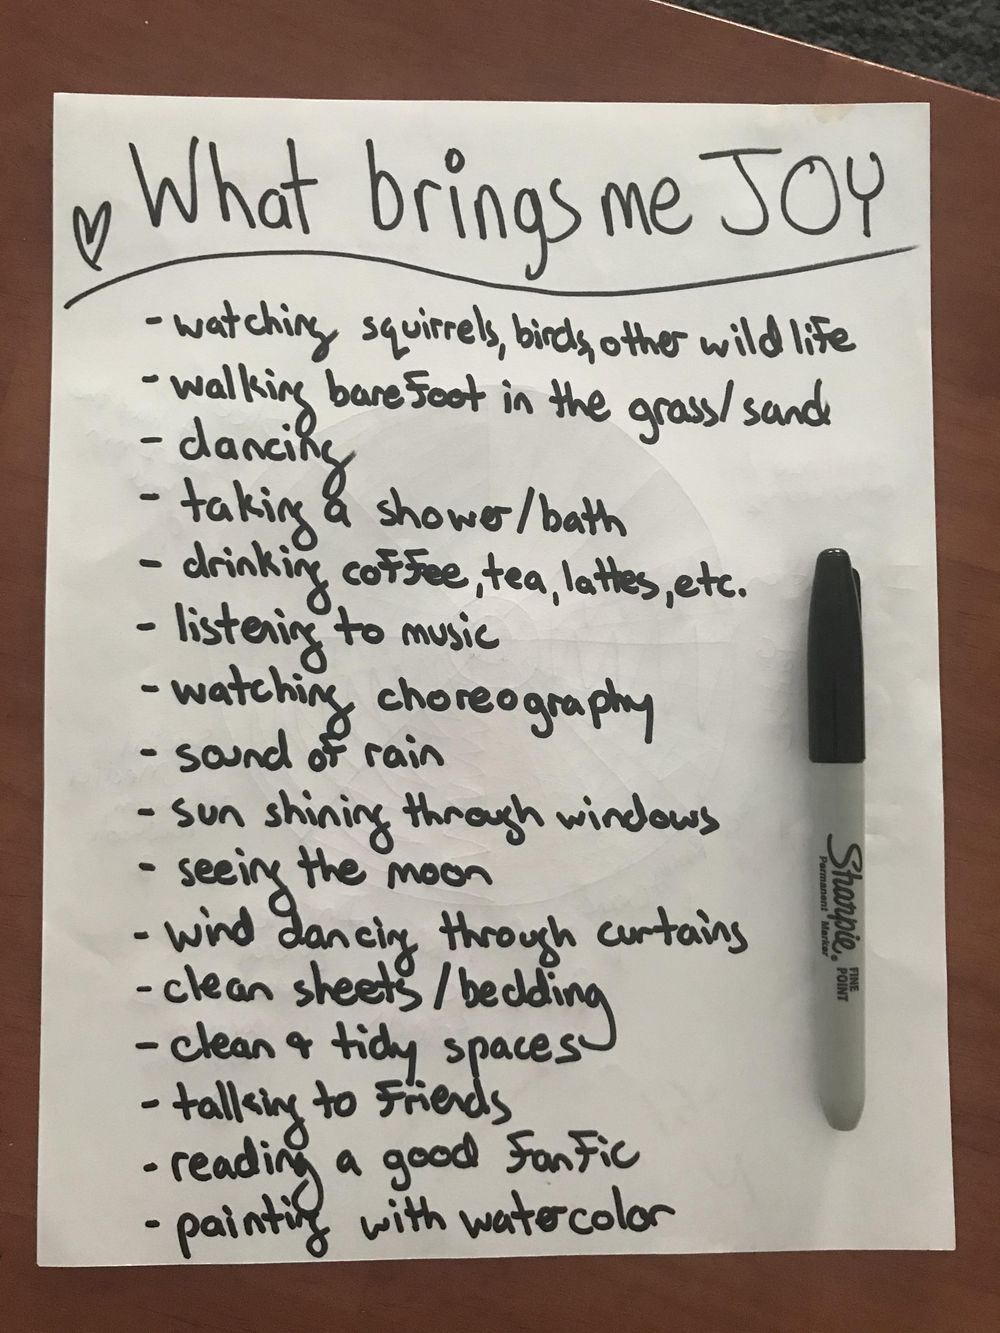 What brings me JOY
- watching squirrels, birds, other wild life
- walking barefoot in the grass/sand
- dancing
- taking a shower/bath
- drinking coffee, tea, lattes, etc.
- listening to music
- watching choreography
- sound of rain
- sun shining through windows
- seeing the moon
- wind dancing through curtains
- clean sheets/bedding
- clean & tidy spaces
- talking to friends
- reading a good fanfic
- painting with watercolor
Sharpie.
Permanent Marker
FINE
POINT